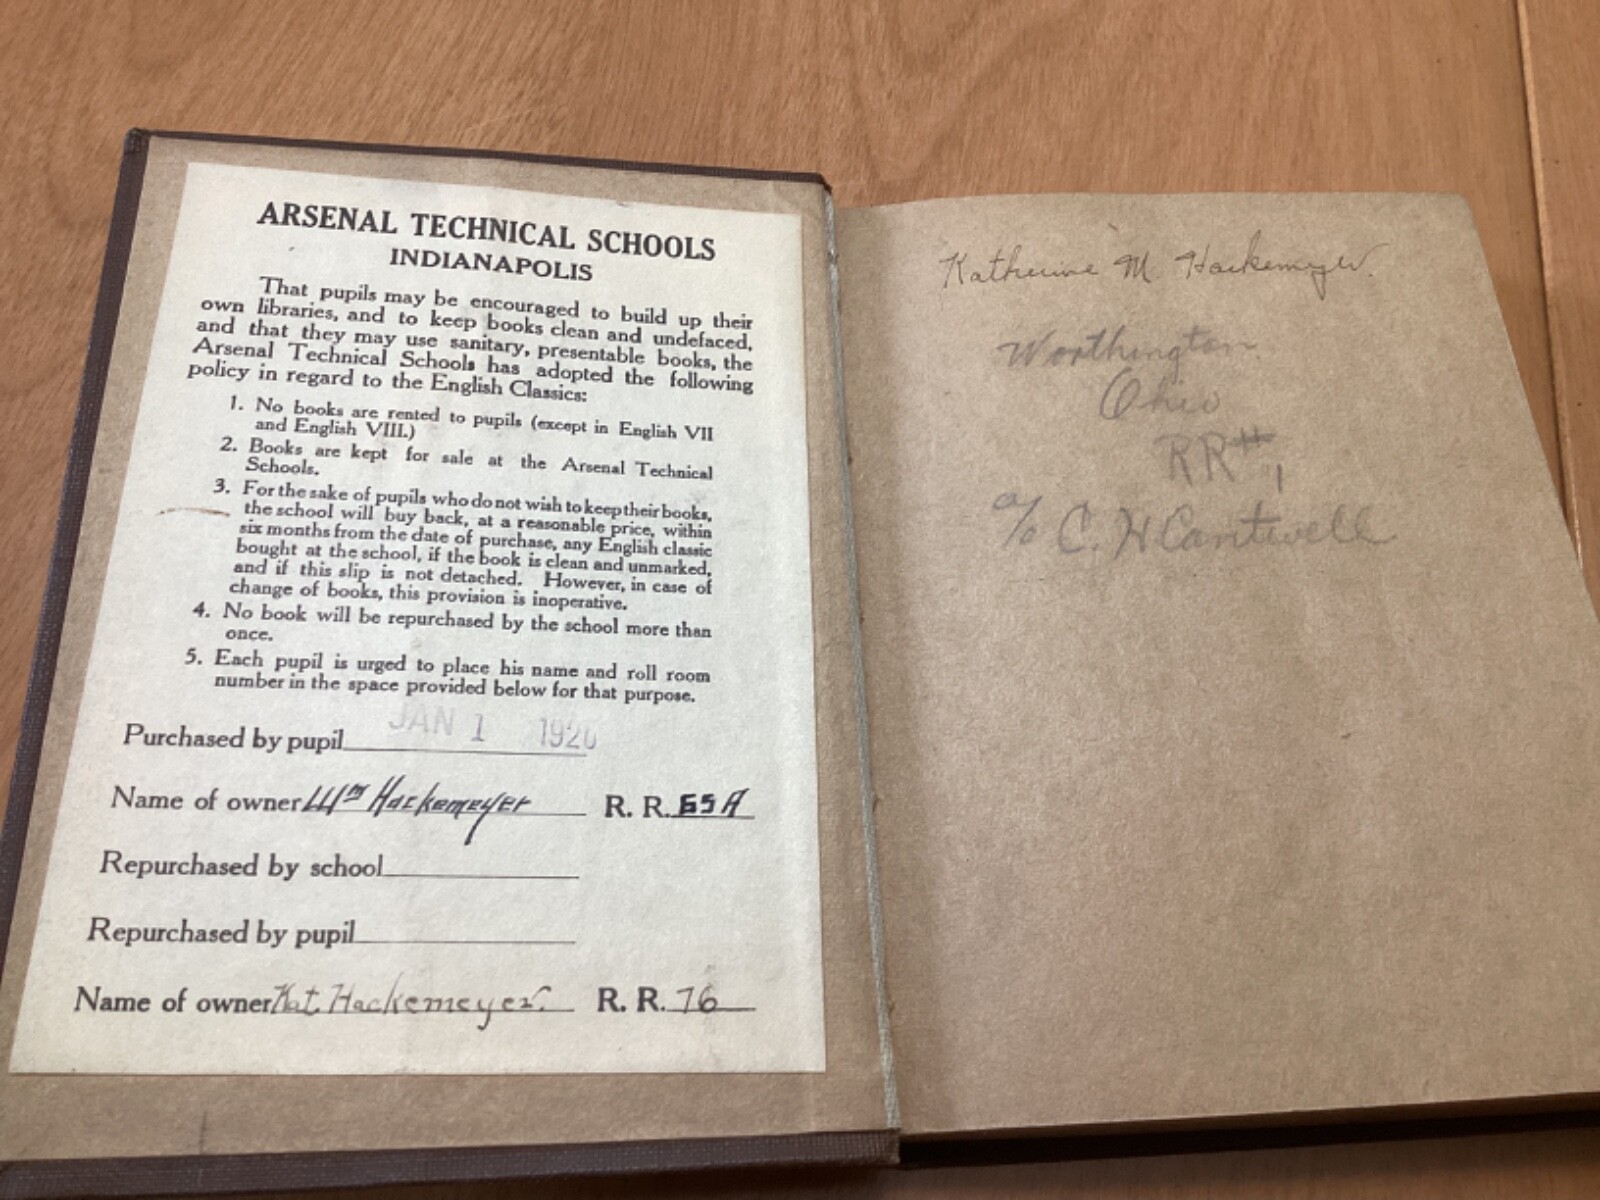 ARSENAL TECHNICAL SCHOOLS
INDIANAPOLIS
That pupils may be encouraged to build up their
own libraries, and to keep books clean and undefaced,
and that they may use sanitary, presentable books, the
Arsenal Technical Schools has adopted the following
policy in regard to the English Classics:
1. No books are rented to pupils (except in English VII
and English VIII.)
2. Books are kept for sale at the Arsenal Technical
Schools.
3. For the sake of pupils who do not wish to keep their books,
the school will buy back, at a reasonable price, within
six months from the date of purchase, any English classic
bought at the school, if the book is clean and unmarked,
and if this slip is not detached. However, in case of
change of books, this provision is inoperative.
4. No book will be repurchased by the school more than
once.
5. Each pupil is urged to place his name and roll room
number in the space provided below for that purpose.
Purchased by pupil JAN 1 1920
Name of owner Wm Hackemeyer R. R. 65A
Repurchased by school
Repurchased by pupil
Name of owner Kat. Hackemeyer. R. R. 76
Katherine M Hackemeyer.
Worthington
Ohio
RR#1
c/o C. H Cantwell